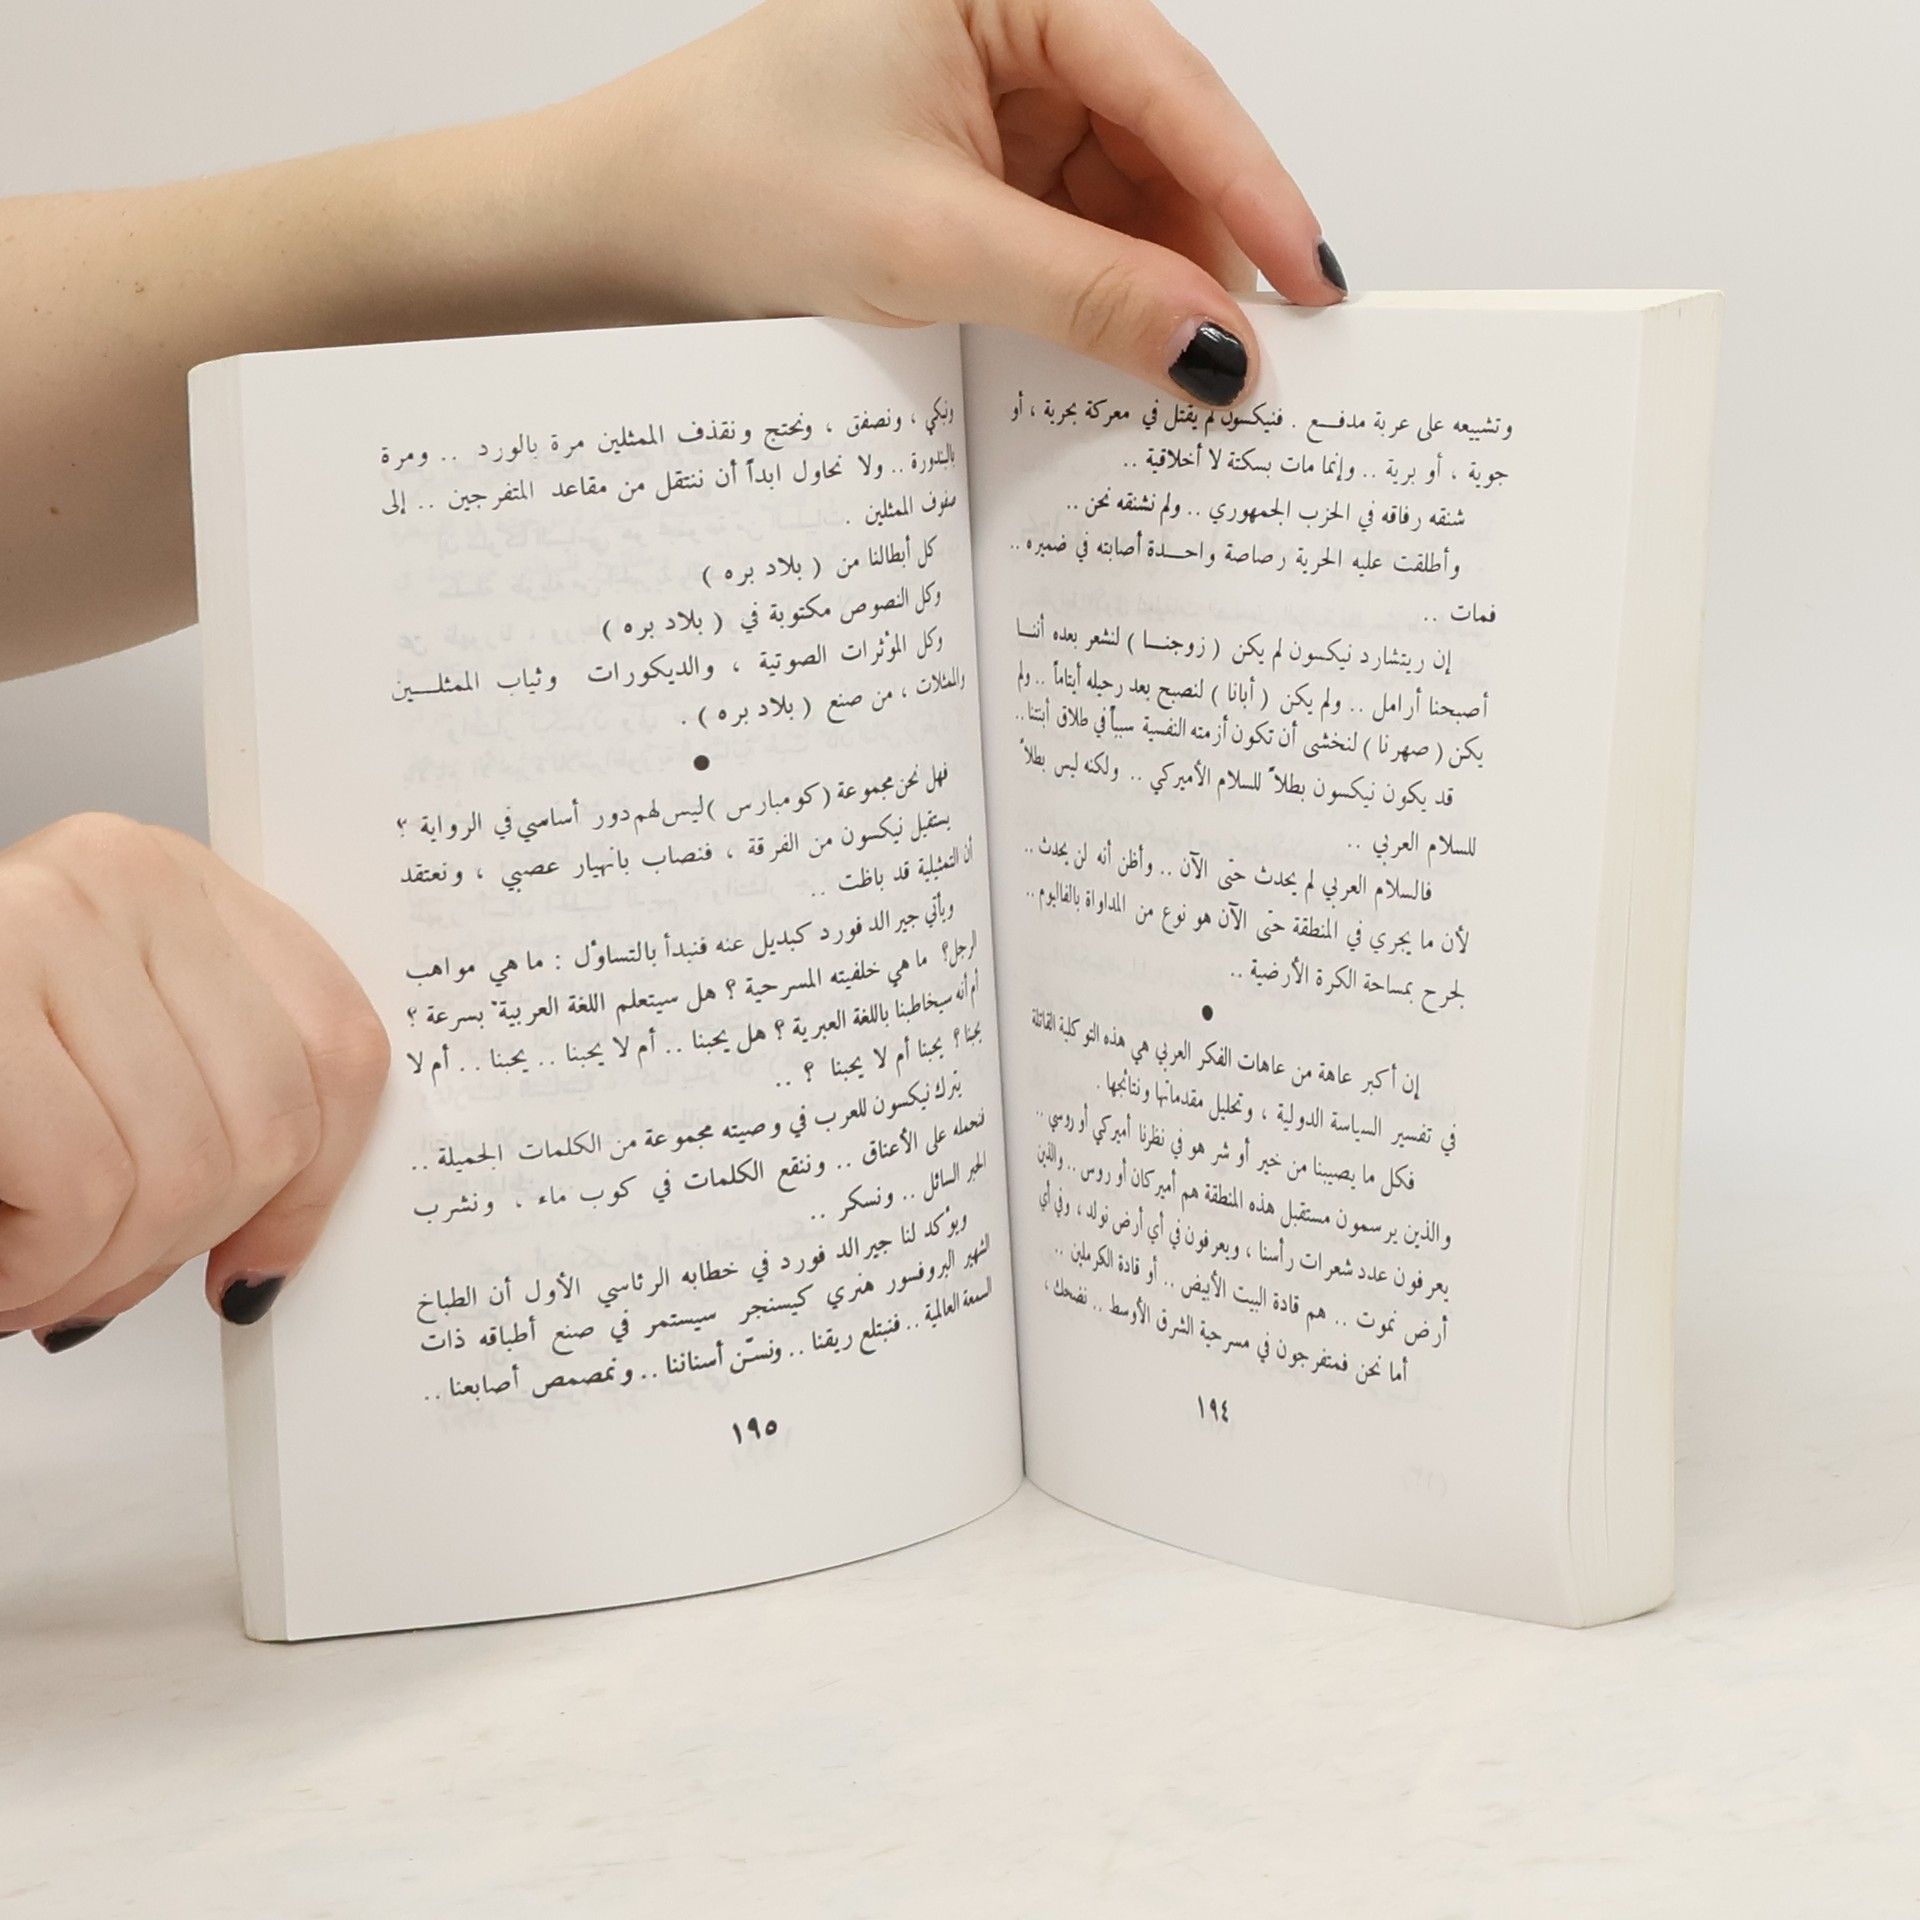 وتشييعه على عربة مدفع . فنيكسون لم يقتل في معركة بحرية ، أو
جوية ، أو برية .. وإنما مات بسكتة لا أخلاقية ..
شنقه رفاقه في الحزب الجمهوري .. ولم نشنقه نحن ..
وأطلقت عليه الحرية رصاصة واحدة أصابته في ضميره ..
فمات ..
إن ريتشارد نيكسون لم يكن ( زوجنا ) لنشعر بعده أننا
أصبحنا أرامل .. ولم يكن ( أبانا ) لنصبح بعد رحيله أيتاماً .. ولم
يكن ( صهرنا ) لنخشى أن تكون أزمته النفسية سبباً في طلاق أبنتنا ..
قد يكون نيكسون بطلاً للسلام الأميركي .. ولكنه ليس بطلاً
للسلام العربي ..
فالسلام العربي لم يحدث حتى الآن .. وأظن أنه لن يحدث ..
لأن ما يجري في المنطقة حتى الآن هو نوع من المداواة بالفاليوم ..
لجرح بمساحة الكرة الأرضية ..
●
إن أكبر عاهة من عاهات الفكر العربي هي هذه التوكلية القاتلة
في تفسير السياسة الدولية ، وتحليل مقدماتها ونتائجها .
فكل ما يصيبنا من خير أو شر هو في نظرنا أميركي أو روسي ..
والذين يرسمون مستقبل هذه المنطقة هم أميركان أو روس .. والذين
يعرفون عدد شعرات رأسنا ، ويعرفون في أي أرض نولد ، وفي أي
أرض نموت .. هم قادة البيت الأبيض .. أو قادة الكرملين ..
أما نحن فمتفرجون في مسرحية الشرق الأوسط .. نضحك ،
١٩٤
ونبكي ، ونصفق ، ونحتج ونقذف الممثلين مرة بالورد .. ومرة
بالبندورة .. ولا نحاول ابداً أن ننتقل من مقاعد المتفرجين .. إلى
صفوف الممثلين .
كل أبطالنا من ( بلاد بره )
وكل النصوص مكتوبة في ( بلاد بره )
وكل المؤثرات الصوتية ، والديكورات وثياب الممثلين
والممثلات ، من صنع ( بلاد بره ) .
●
فهل نحن مجموعة ( كومبارس ) ليس لهم دور أساسي في الرواية ؟
يستقيل نيكسون من الفرقة ، فنصاب بانهيار عصبي ، ونعتقد
أن التمثيلية قد باظت ..
ويأتي جيرالد فورد كبديل عنه فنبدأ بالتساؤل : ما هي مواهب
الرجل؟ ما هي خلفيته المسرحية ؟ هل سيتعلم اللغة العربية بسرعة ؟
أم أنه سيخاطبنا باللغة العبرية ؟ هل يحبنا .. أم لا يحبنا .. يحبنا .. أم لا
يحبنا ؟ يحبنا أم لا يحبنا ؟ ..
يترك نيكسون للعرب في وصيته مجموعة من الكلمات الجميلة ..
فنحمله على الأعناق .. وننقع الكلمات في كوب ماء ، ونشرب
الحبر السائل .. ونسكر ..
ويؤكد لنا جيرالد فورد في خطابه الرئاسي الأول أن الطباخ
الشهير البروفسور هنري كيسنجر سيستمر في صنع أطباقه ذات
السمعة العالمية .. فنبتلع ريقنا .. ونسنّ أسناننا .. ونمصمص أصابعنا ..
١٩٥